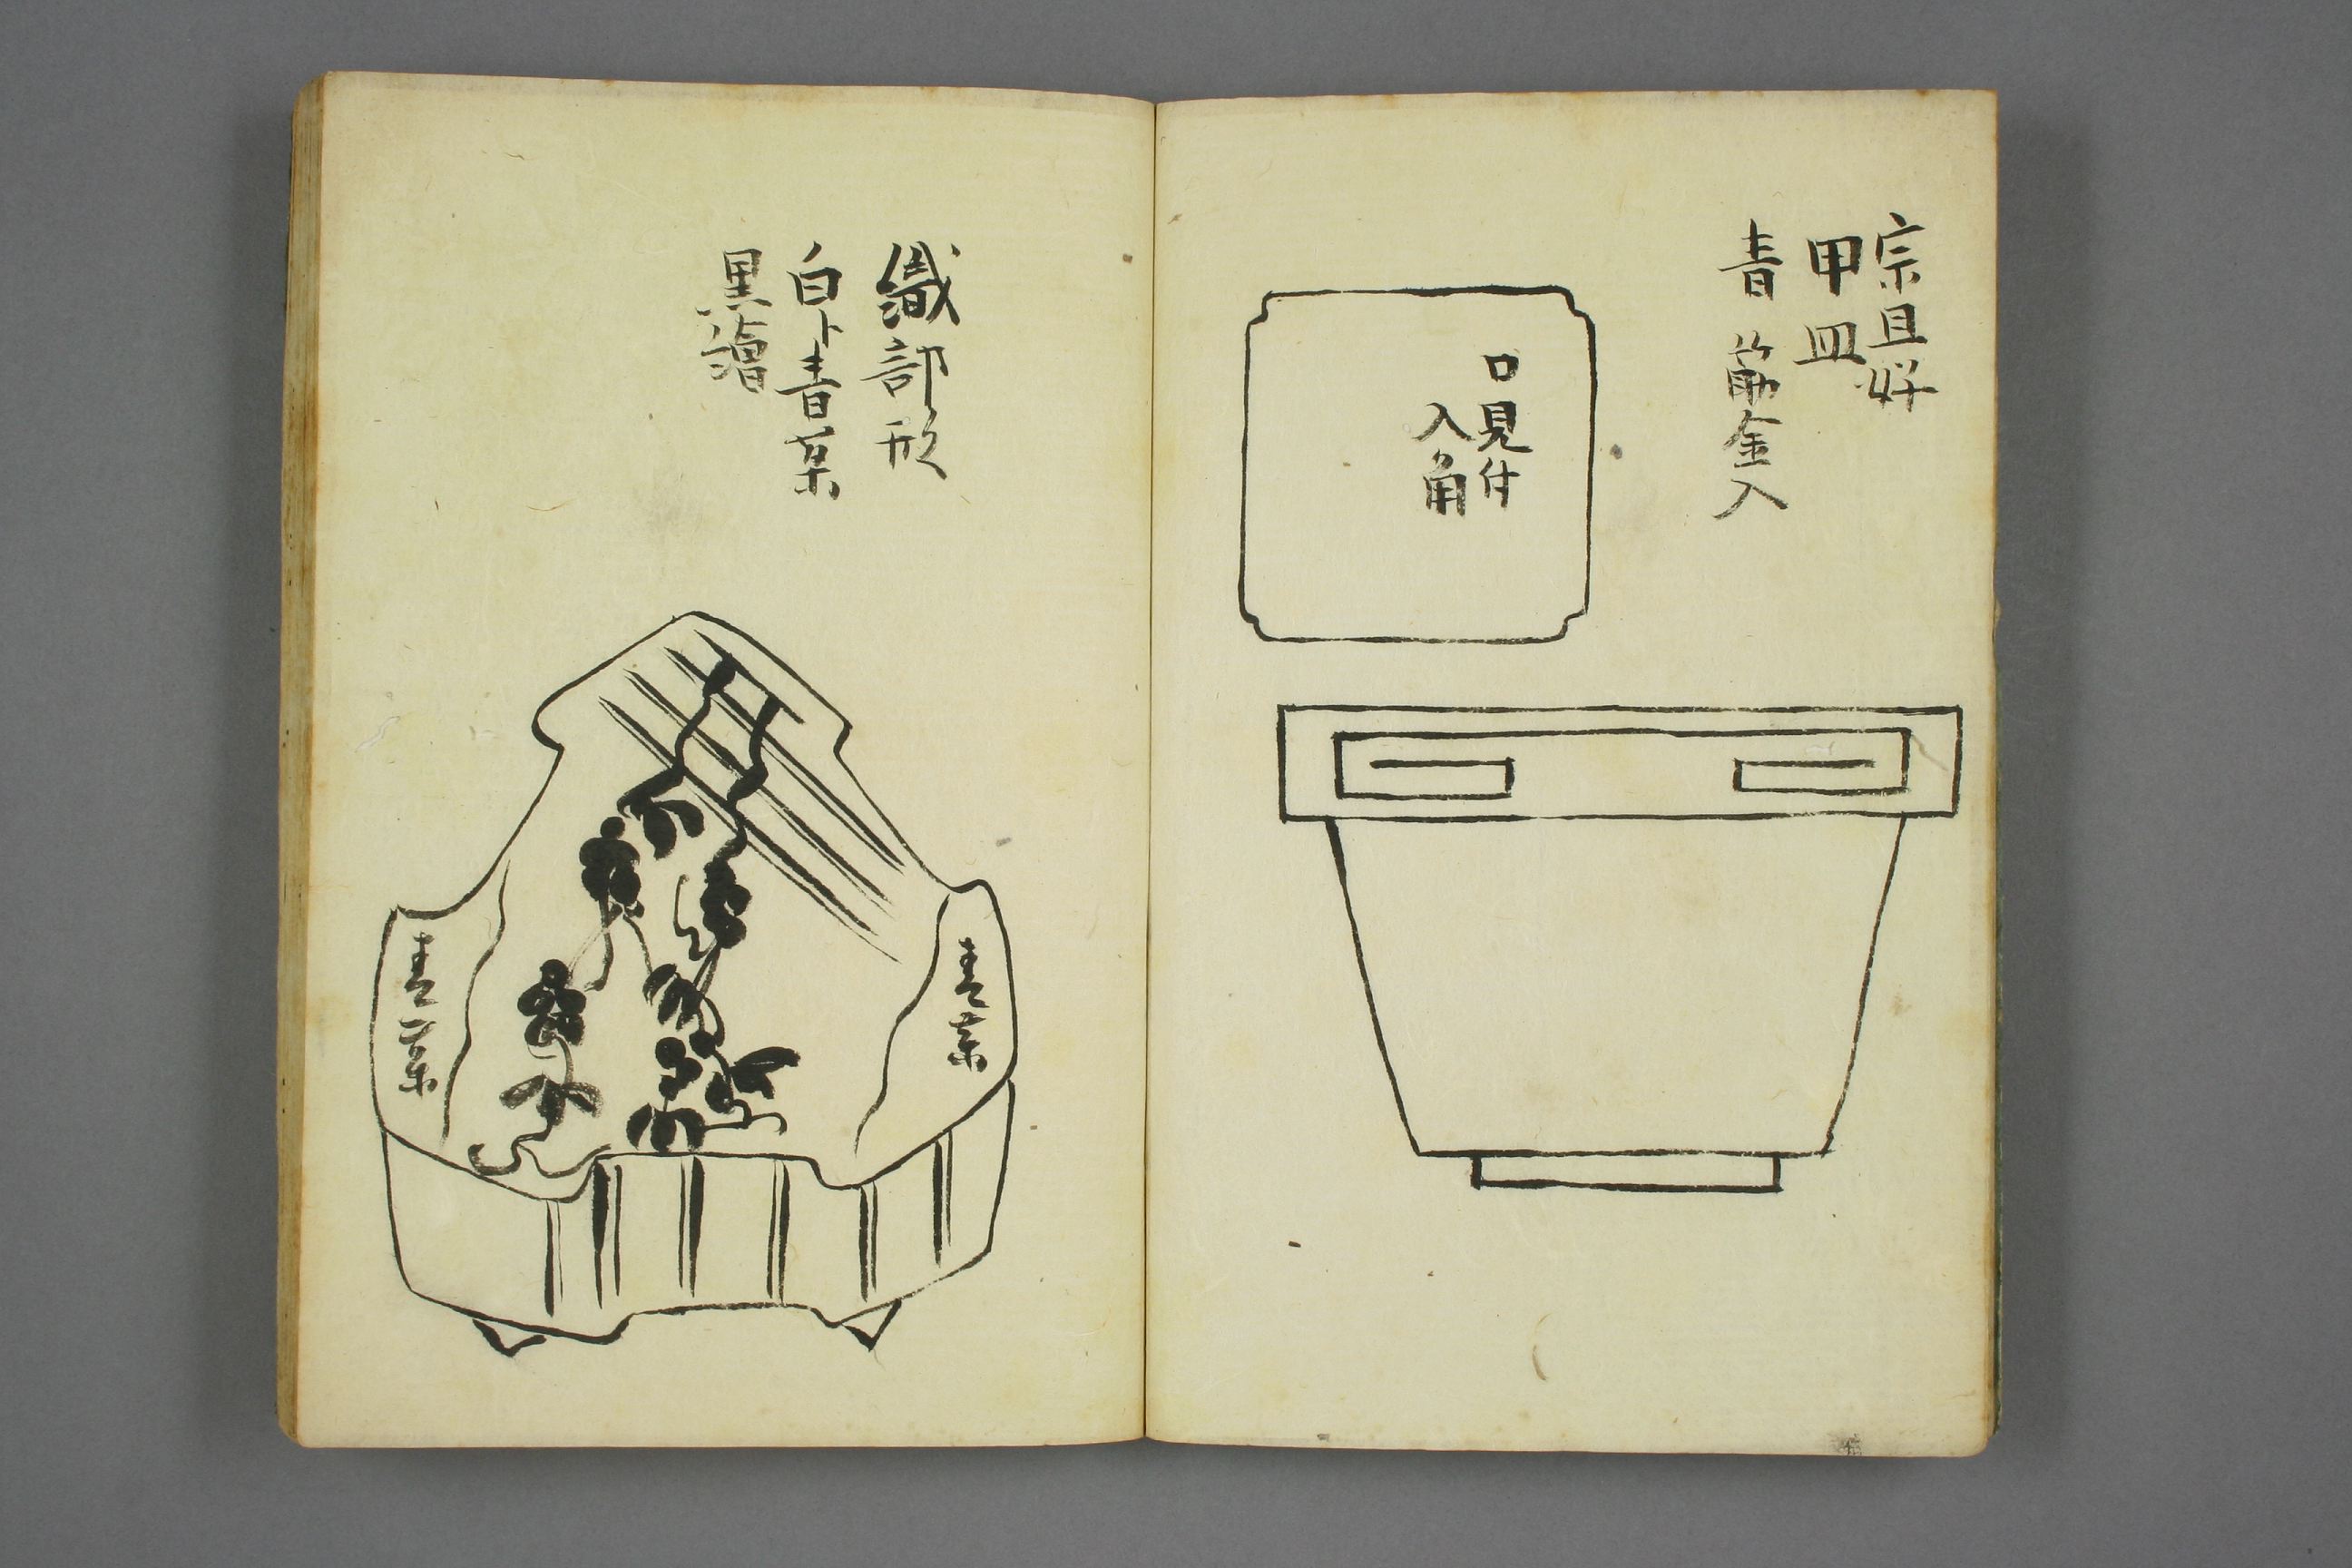 宗旦好
甲皿
青筋金入
口見付
入角
織部形
白ト青薬
黒繪
青薬
青薬